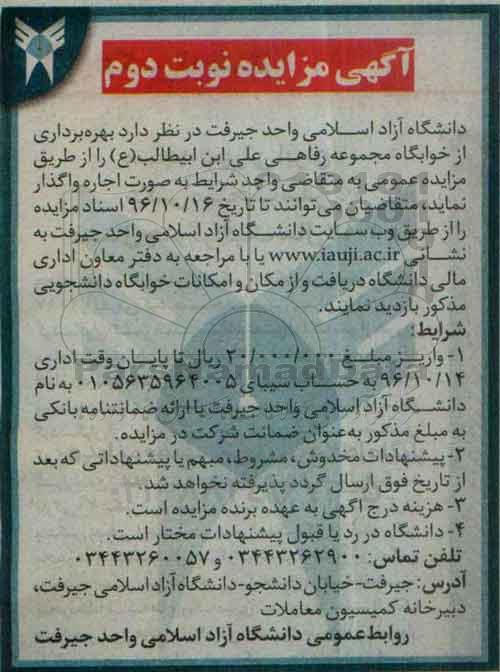 آگهی مزایده نوبت دوم
دانشگاه آزاد اسلامی واحد جیرفت در نظر دارد بهره‌برداری
از خوابگاه مجموعه رفاهی علی ابن ابیطالب(ع) را از طریق
مزایده عمومی به متقاضی واجد شرایط به صورت اجاره واگذار
نماید، متقاضیان می‌توانند تا تاریخ ۹۶/۱۰/۱۶ اسناد مزایده
را از طریق وب سایت دانشگاه آزاد اسلامی واحد جیرفت به
نشانی www.iauji.ac.ir یا با مراجعه به دفتر معاون اداری
مالی دانشگاه دریافت و از مکان و امکانات خوابگاه دانشجویی
مذکور بازدید نمایند.
شرایط:
۱- واریز مبلغ ۲۰/۰۰۰/۰۰۰ ریال تا پایان وقت اداری
۹۶/۱۰/۱۴ به حساب سیبای ۰۱۰۵۶۳۵۹۶۴۰۰۵ به نام
دانشگاه آزاد اسلامی واحد جیرفت یا ارائه ضمانتنامه بانکی
به مبلغ مذکور به‌عنوان ضمانت شرکت در مزایده.
۲- پیشنهادات مخدوش، مشروط، مبهم یا پیشنهاداتی که بعد
از تاریخ فوق ارسال گردد پذیرفته نخواهد شد.
۳- هزینه درج اگهی به عهده برنده مزایده است.
۴- دانشگاه در رد یا قبول پیشنهادات مختار است.
تلفن تماس: ۰۳۴۴۳۲۶۲۹۰۰ و ۰۳۴۴۳۲۶۰۰۵۷
آدرس: جیرفت-خیابان دانشجو-دانشگاه آزاد اسلامی جیرفت،
دبیرخانه کمیسیون معاملات
روابط عمومی دانشگاه آزاد اسلامی واحد جیرفت